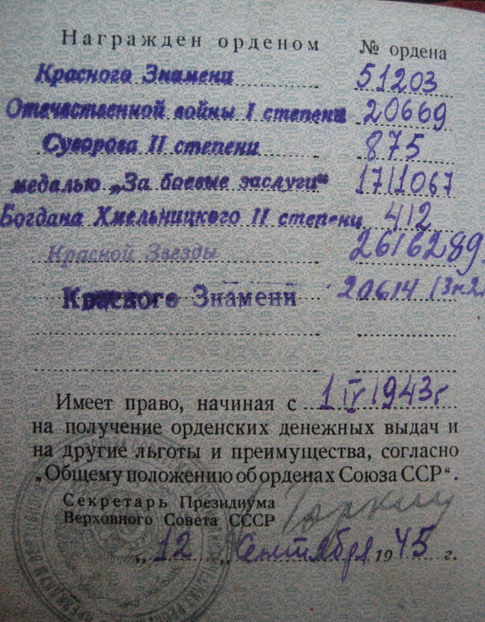 Награжден орденом № ордена
Красного Знамени 51203
Отечественной войны I степени 20669
Суворова II степени 875
медалью „За боевые заслуги“ 1711067
Богдана Хмельницкого II степени 412
Красной Звезды 2616289
Красного Знамени 20614
Имеет право, начиная с 1 IV 1943г
на получение орденских денежных выдач и
на другие льготы и преимущества, согласно
„Общему положению об орденах Союза ССР“.
Секретарь Президиума
Верховного Совета СССР Горкин
„12„ Сентября 1945 г.